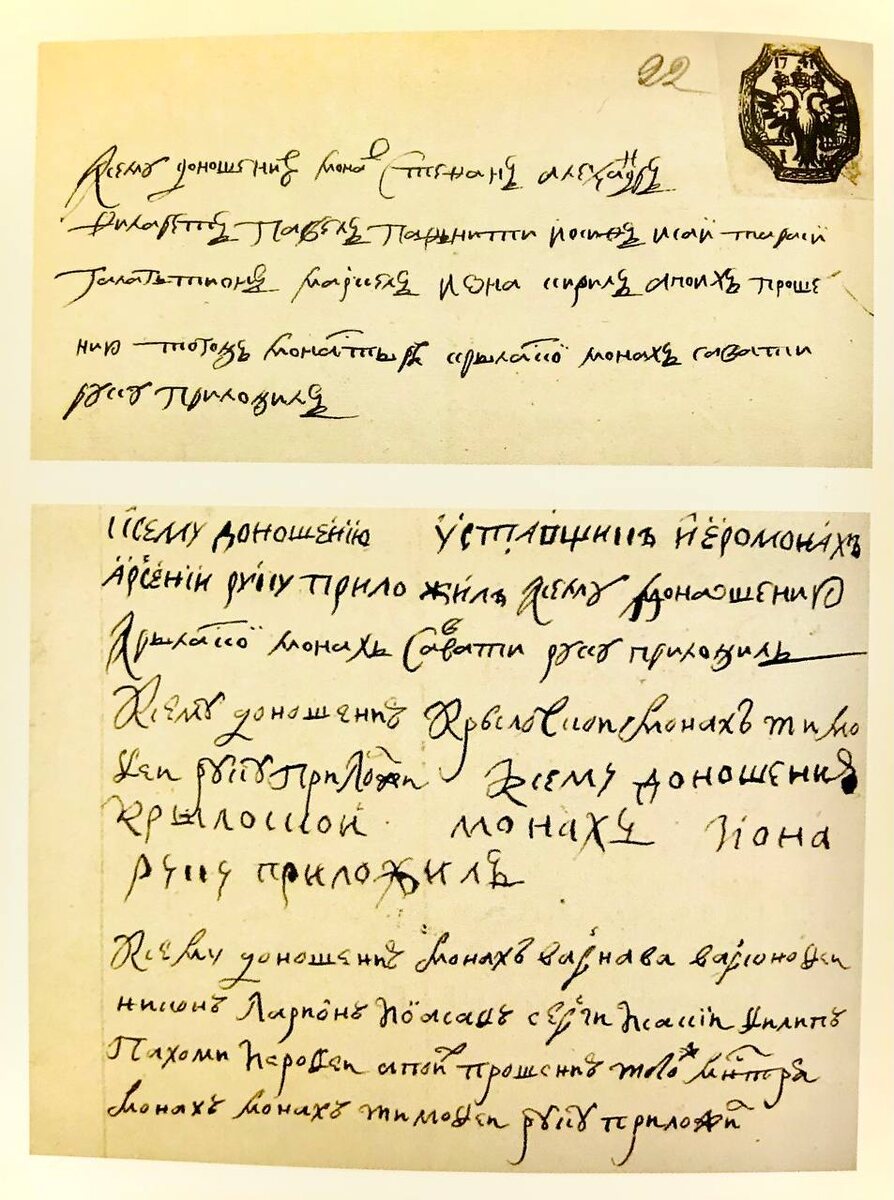 22
1741
Ксему доношению мона Стефанъ александръ
Филаретъ Павелъ Пафнити иосифъ исаи тараси
Галатътионъ маркелъ иона кирилъ апоихъ проше
нию тогожъ монастыря крыласкои монахъ савати
руку приложилъ
Ксему доношению уставщикъ иеромонахъ
Арсении руку приложилъ Ксему доношению
Крыласкои монахъ Савати руку приложилъ
Ксему доношению Крылоскои монахъ тимо
ѳеи руку приложи Ксему доношению
крылоскои монахъ Иона
руку приложилъ
Ксему доношению монахъ варнава варѳоломеи
никонъ Ларионъ Иоасаѳъ серги исакии ѳилипъ
Пахоми Нероѳеи апоих прошению того мнтря
монахъ монахъ тимоѳеи руку приложи